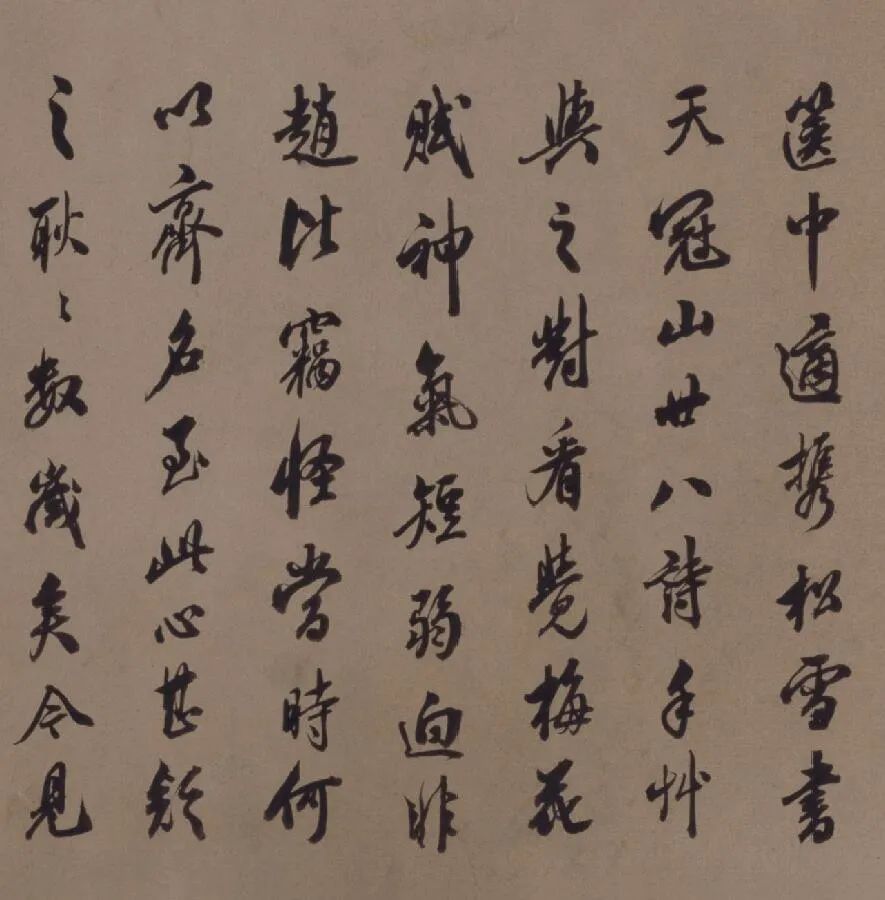 箧中適携松雪書
天冠山廿八詩手艸
與之對看覺梅花
賦神氣短弱迥非
趙比竊怪當時何
以齊名至此心甚疑
之耿〻數歲矣今見